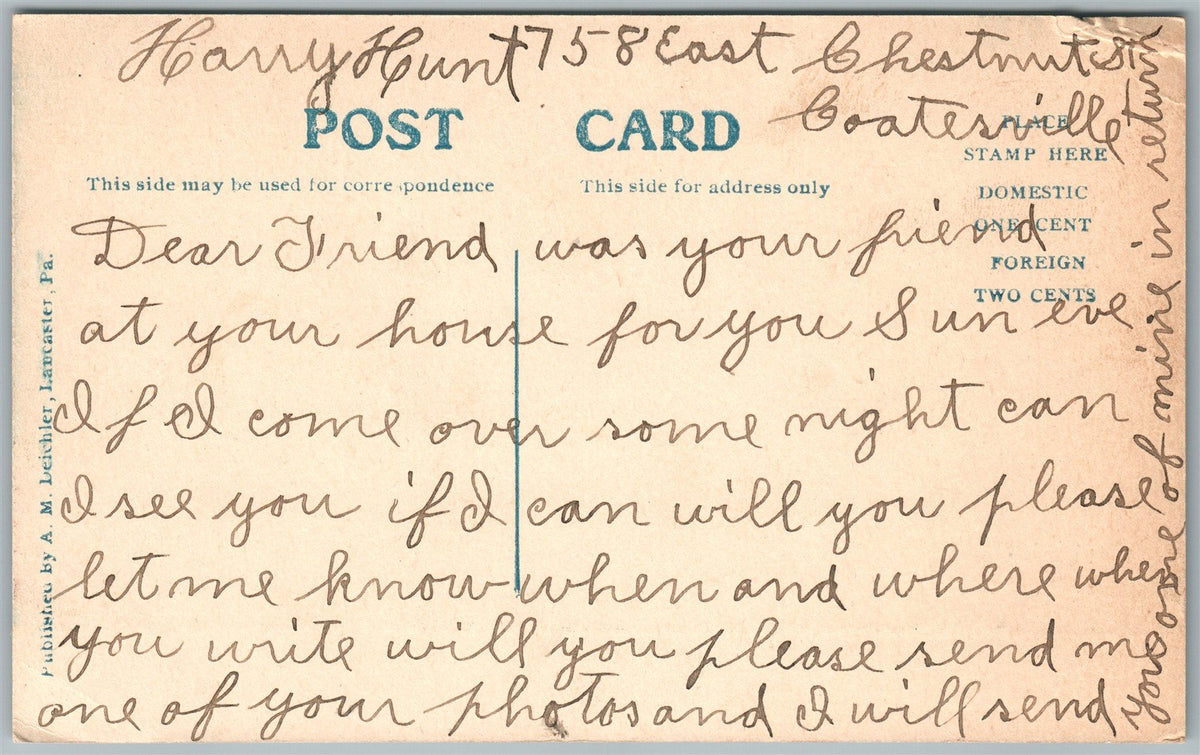 Harry Hunt 758 East Chestnut St
Coatesville
POST CARD
PLACE
STAMP HERE
DOMESTIC
ONE CENT
FOREIGN
TWO CENTS
This side may be used for correspondence
This side for address only
Dear Friend was your friend
at your house for you Sun eve
If I come over some night can
I see you if I can will you please
let me know when and where when
you write will you please send me
one of your photos and I will send
you one of mine in return
Published by A. M. Deichler, Lancaster, Pa.